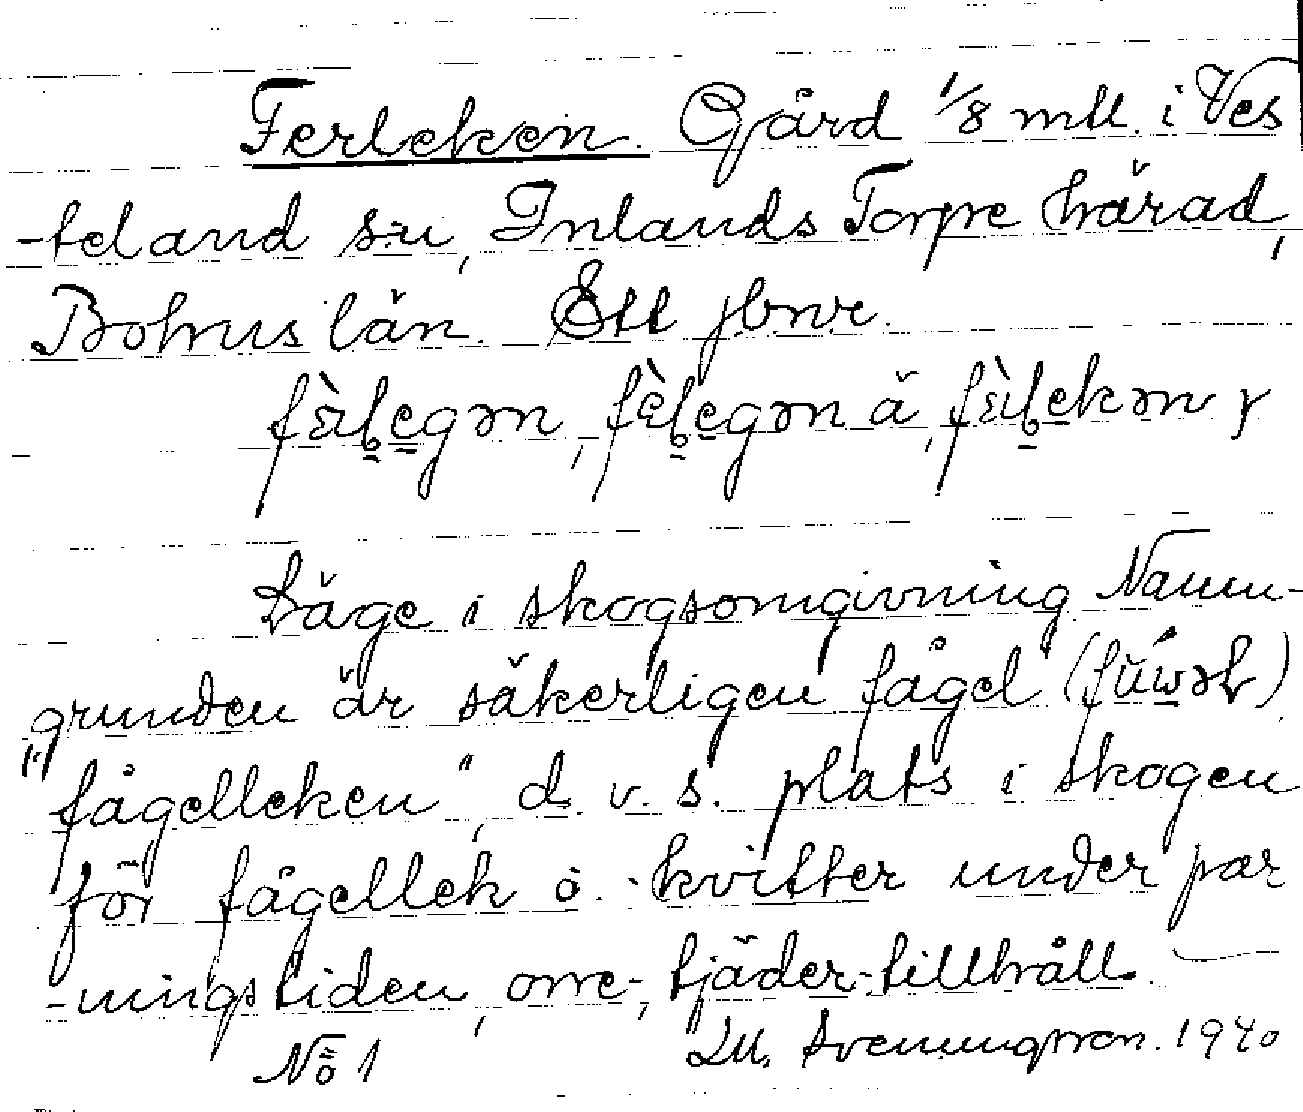 Ferleken. Gård 1/8 mtl. i Ves
-teland sn, Inlands Torpe härad,
Bohus län. Ett
fɛ̀ḷegən, fèḷegən ä, fɛ̀ḷekən γ
Läge i skogsomgivning Namn-
grunden är säkerligen fågel (fúwəl)
"fågelleken", d. v. s. plats i skogen
för fågellek o. kvitter under par
-ningstiden, orre-, tjäder-tillhåll.
No 1 Svenungsson. 1940